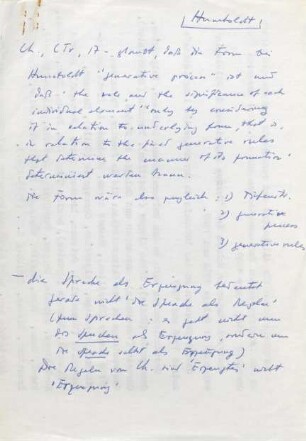 [Humboldt]
Ch., CTr, 17 - glaubt, daß die Form bei
Humboldt "generative process" ist und
daß "the role and the significance of each
individual element" "only by considering
it in relation to underlying form, that is,
in relation to the fixed generative rules
that determine the manner of its formation"
determiniert werden kann.
Die Form wäre also zugleich: 1)
2) generative
process
3) generative rules
- die Sprache als Erzeugung bedeutet
gerade nicht 'die Sprache als Regeln
(zum Sprechen: es geht nicht um
das Sprechen als Erzeugung, sondern um
die Sprache selbst als Erzeugung)
Die Regeln von Ch. sind 'Erzeugtes' nicht
'Erzeugung'